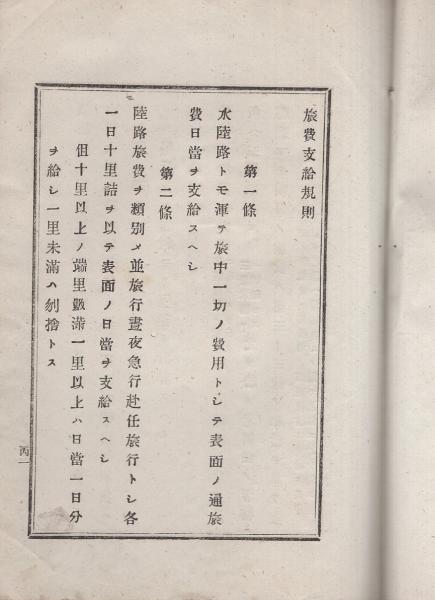 旅費支給規則
第一條
水陸路トモ渾テ旅中一切ノ費用トシテ表面ノ通旅
費日當ヲ支給スヘシ
第二條
陸路旅費ヲ類別メ並旅行晝夜急行赴任旅行トシ各
一日十里詰ヲ以テ表面ノ日當ヲ支給スヘシ
但十里以上ノ端里數滿一里以上ハ日當一日分
ヲ給シ一里未滿ハ刎捨トス
丙一